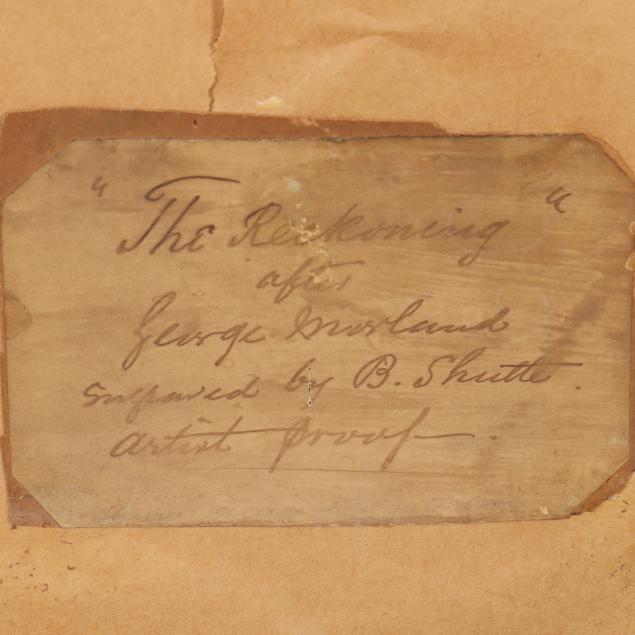 "The Reckoning"
after
George Morland
Engraved by B. Shutte.
Artist proof.